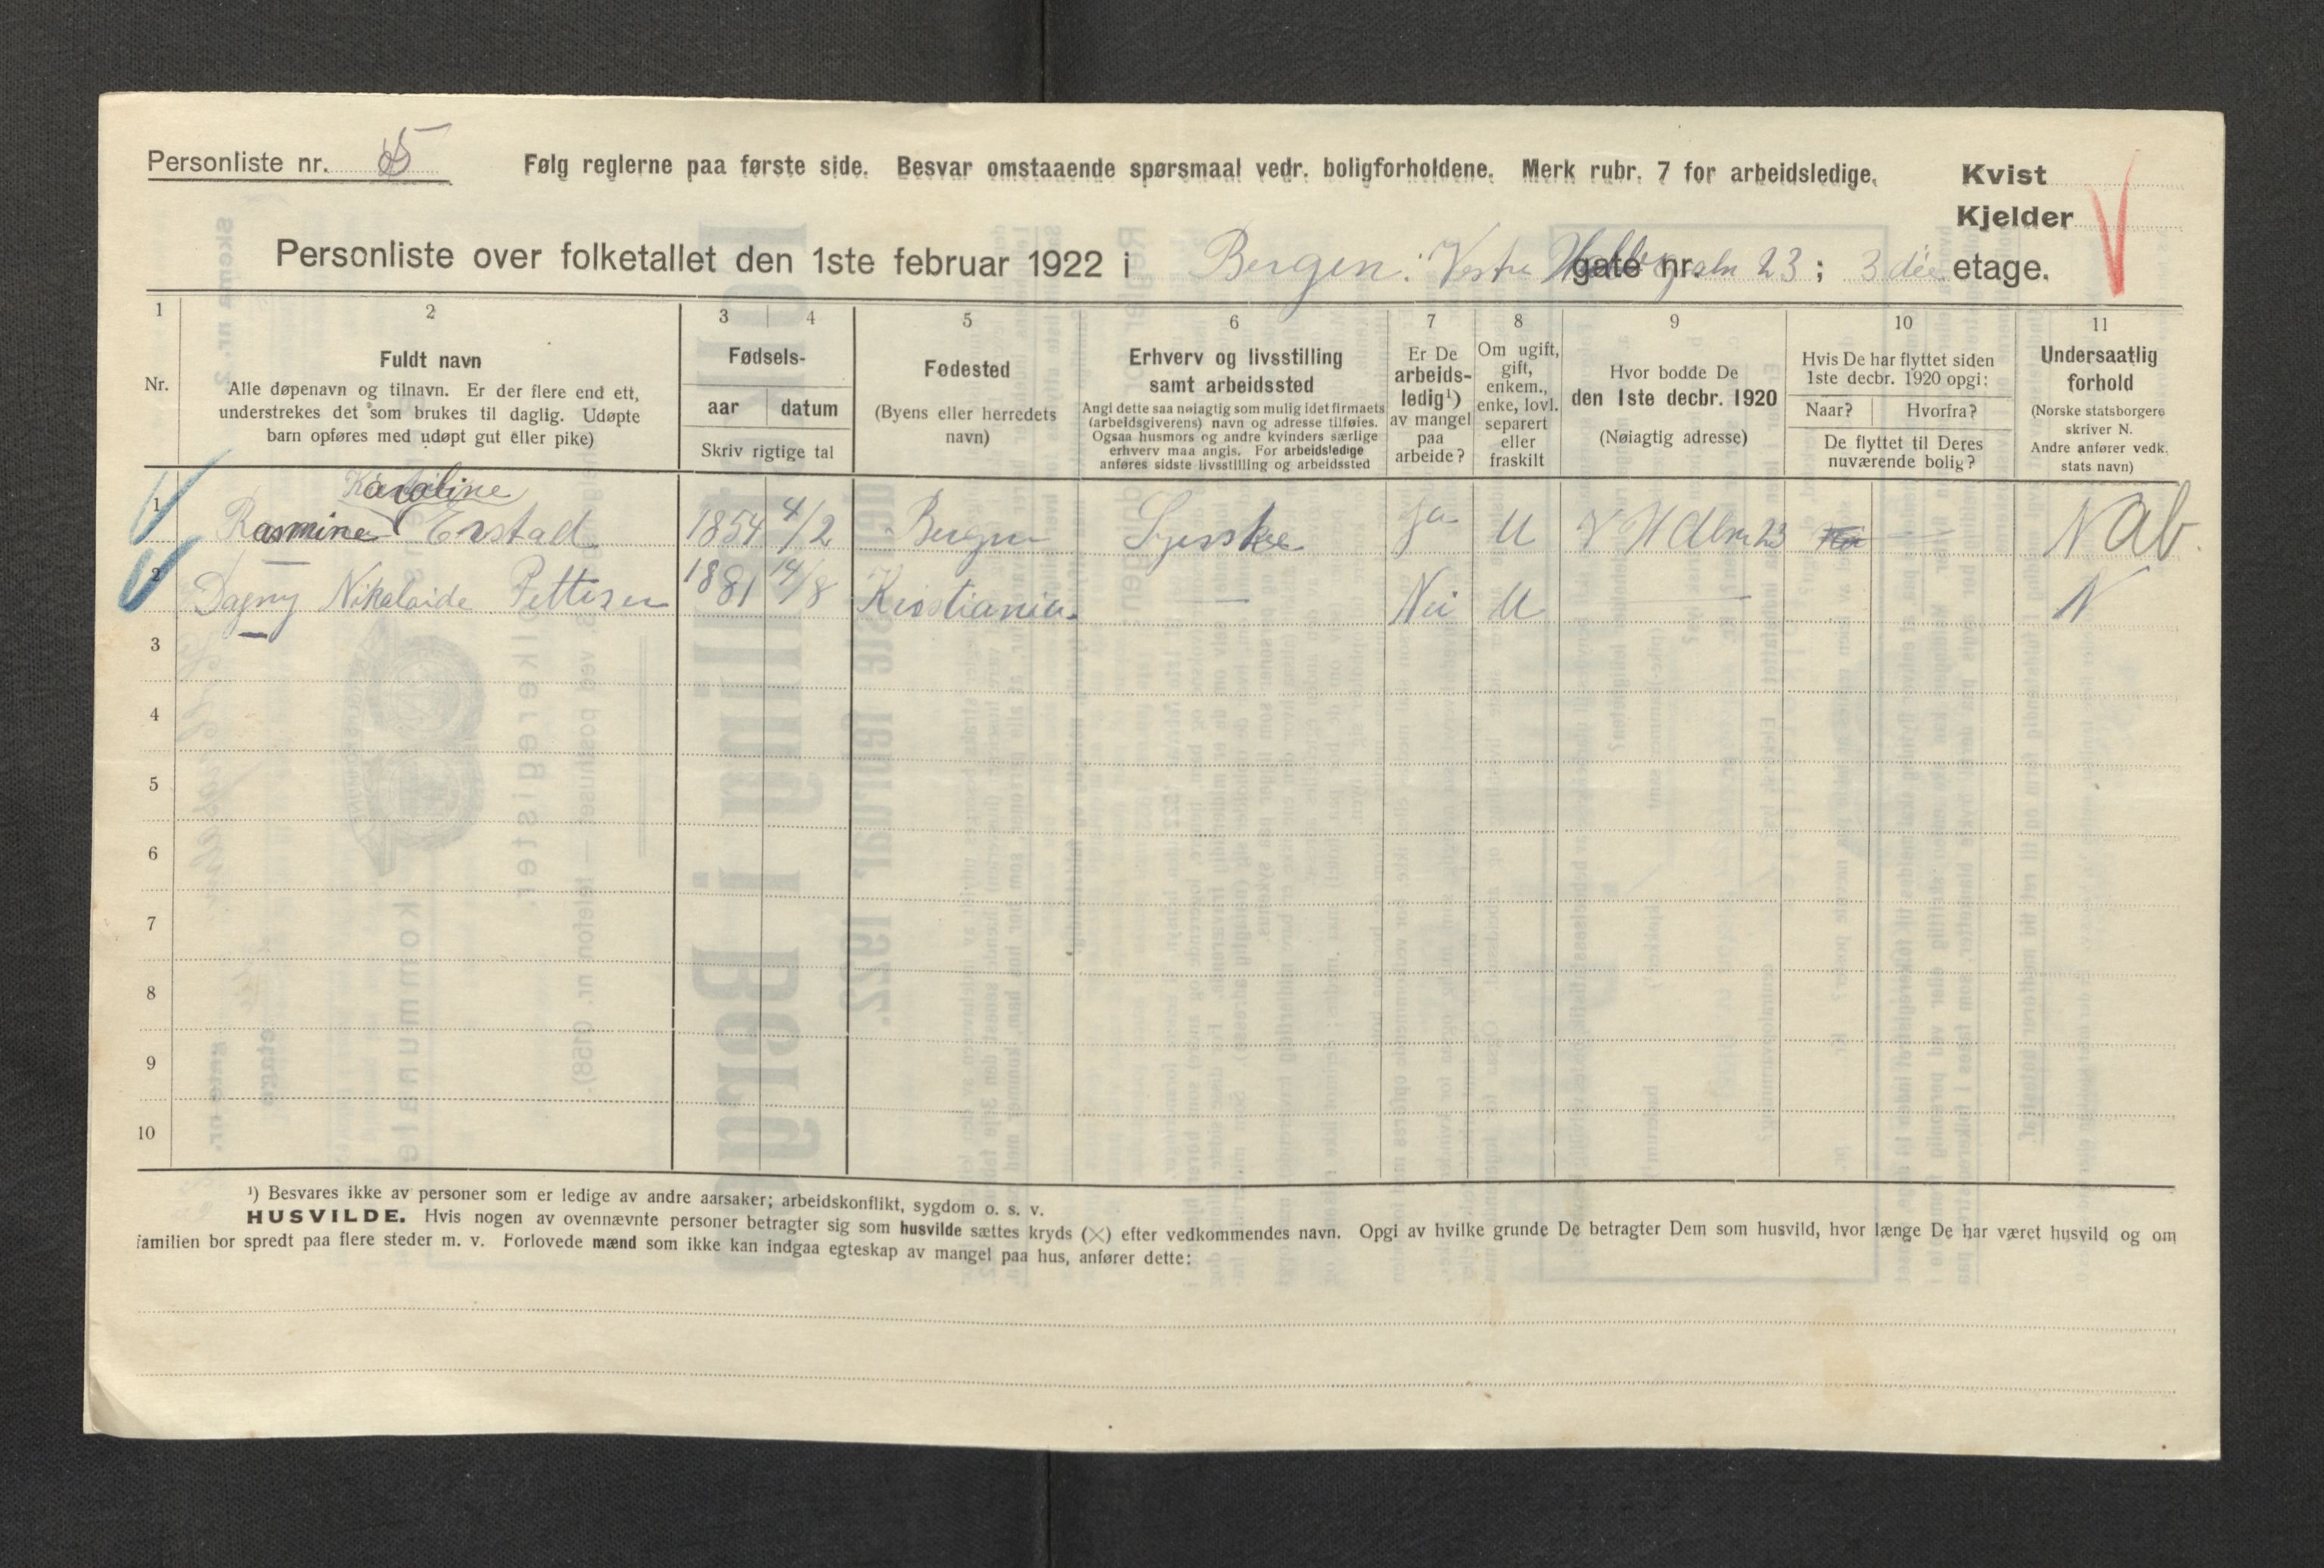 Personliste nr. 5
Følg reglerne paa første side. Besvar omstaaende spørsmaal vedr. boligforholdene. Merk rubr. 7 for arbeidsledige.
Kvist
Kjelder
Personliste over folketallet den 1ste februar 1922 i Bergen: Vestre gate nr. 23; 3die etage.
1 2 3 4 5 6 7 8 9 10 11
Nr.
Fuldt navn
Alle døpenavn og tilnavn. Er der flere end ett,
understrekes det som brukes til daglig. Udøpte
barn opføres med udøpt gut eller pike)
Fødsels-
aar datum
Skriv rigtige tal
Fødested
(Byens eller herredets
navn)
Erhverv og livsstilling
samt arbeidssted
Angi dette saa nøiagtig som mulig idet firmaets
(arbeidsgiverens) navn og adresse tilføies.
Ogsaa husmors og andre kvinders særlige
erhverv maa angis. For arbeidsledige
anføres sidste livsstilling og arbeidssted
Er De
arbeids-
ledig¹)
av mangel
paa
arbeide?
Om ugift,
gift,
enkem.,
enke, lovl.
separert
eller
fraskilt
Hvor bodde De
den 1ste decbr. 1920
(Nøiagtig adresse)
Hvis De har flyttet siden
1ste decbr. 1920 opgi:
Naar? Hvorfra?
De flyttet til Deres
nuværende bolig?
Undersaatlig
forhold
(Norske statsborgere
skriver N.
Andre anfører vedk.
stats navn)
Karoline
1 Rasmine Erstad 1854 4/2 Bergen Syerske Ja U 23 — N ab.
2 Dagny Nikolaide Pettersen 1881 14/8 Kristiania — Nei U — N
3
4
5
6
7
8
9
10
¹) Besvares ikke av personer som er ledige av andre aarsaker; arbeidskonflikt, sygdom o. s. v.
HUSVILDE. Hvis nogen av ovennævnte personer betragter sig som husvilde sættes kryds (×) efter vedkommendes navn. Opgi av hvilke grunde De betragter Dem som husvild, hvor længe De har været husvild og om
familien bor spredt paa flere steder m. v. Forlovede mænd som ikke kan indgaa egteskap av mangel paa hus, anfører dette: